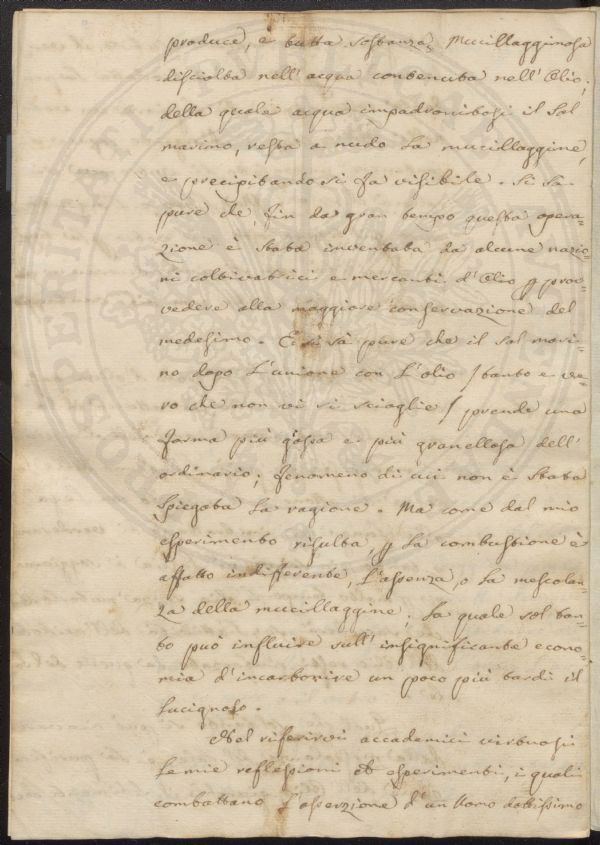 produce, e butta sostanza Mucillagginosa
disciolta nell'acqua contenuta nell'Olio;
della quale acqua impadronitosi il Sal
marino, resta a nudo la mucillaggine,
e precipitando si fa visibile. Si sa
pure che, fin da gran tempo questa opera-
zione è stata inventata da alcune nazio=
ni coltivatrici e mercanti d'Olio p prov-
vedere alla maggiore conservazione del
medesimo. E si sà pure che il sal mari-
no dopo l'unione con l'olio / tanto e ve-
ro che non vi si scioglie / prende una
forma più grossa e più granellosa dell'
ordinario; fenomeno di cui non è stata
spiegata la ragione. Ma come dal mio
esperimento risulta, p la combustione è
affatto indifferente, l'assenza, o la mescolan-
za della mucillaggine; la quale sol tan-
to può influire sull'insignificante econo-
mia d'incarbonire un poco più tardi il
lucignolo.
Nel riferirvi accademici virtuosi
le mie reflessioni ed esperimenti, i quali
combattano l'asserzione d'un Uomo dottissimo